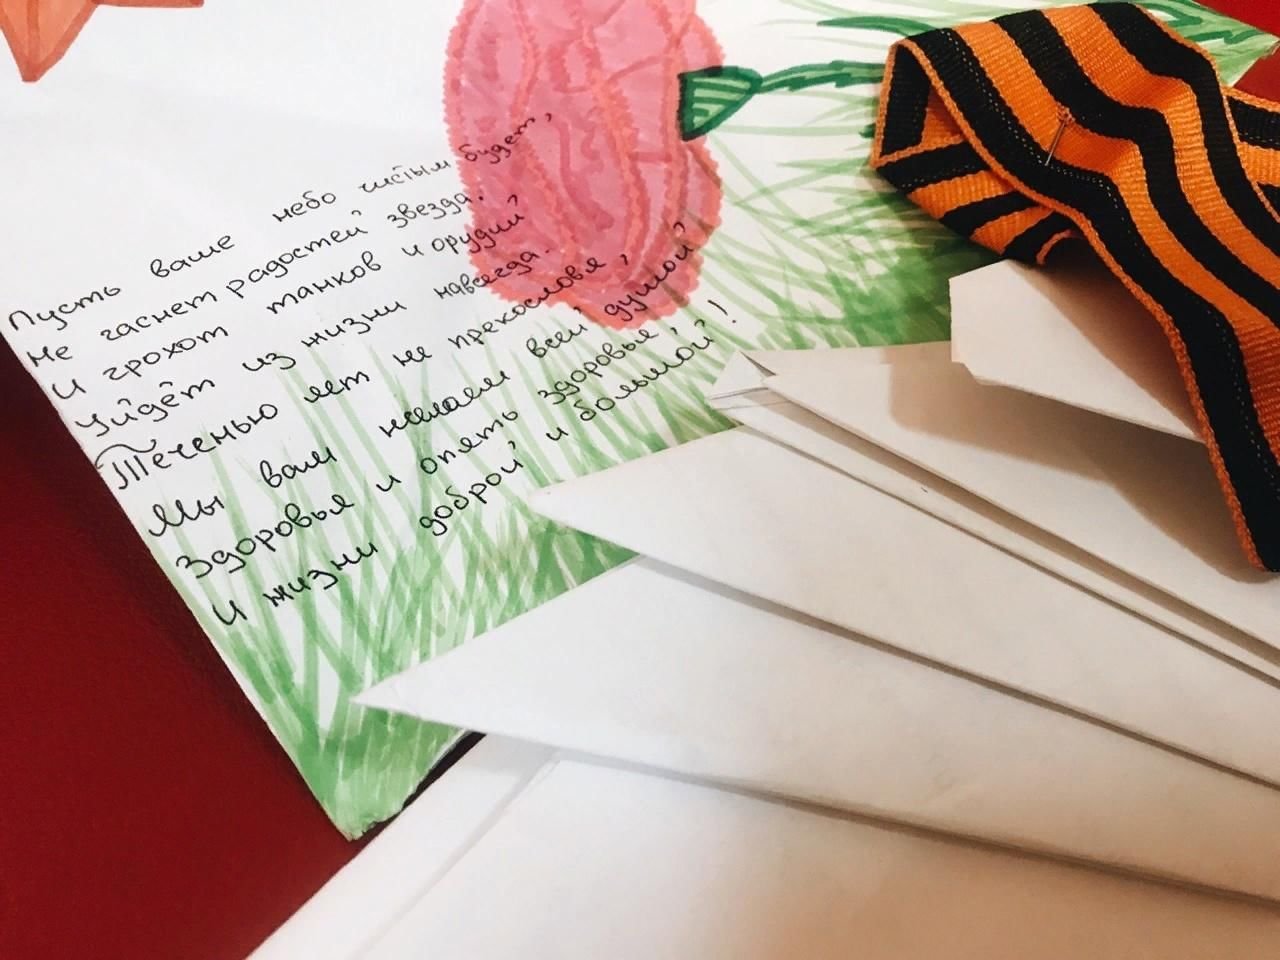 Пусть ваше небо чистым будет,
Не гаснет радостей звезда.
И грохот танков и орудий
Уйдёт из жизни навсегда.
Теченью лет не прекословя,
Мы вам желаем всей душой
Здоровья и опять здоровья,
И жизни доброй и большой!